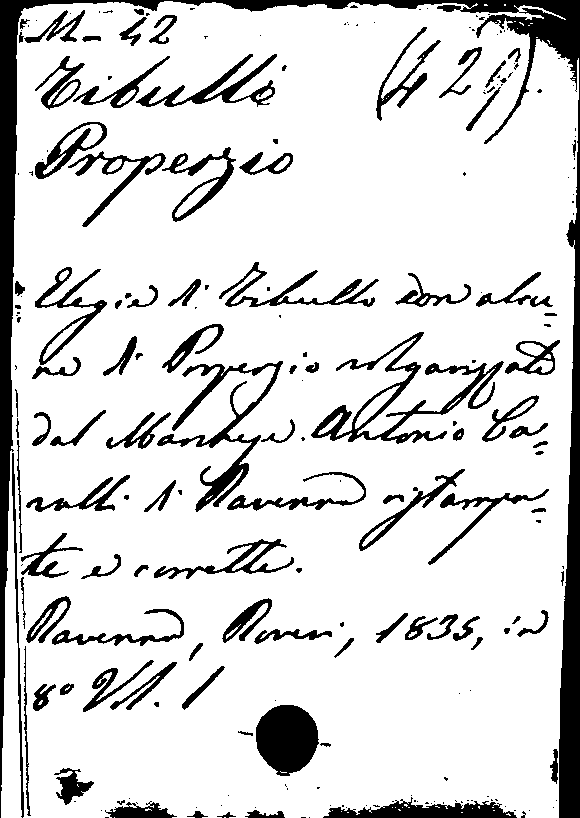 M- 42
Tibullo (429).
Properzio
Elegie di Tibullo con alcu=
ne di Properzio volgarizzate
dal Marchese Antonio Ca=
valli di Ravenna ristampa=
te e corrette.
Ravenna, Roveri, 1835, in
8º Vol. 1